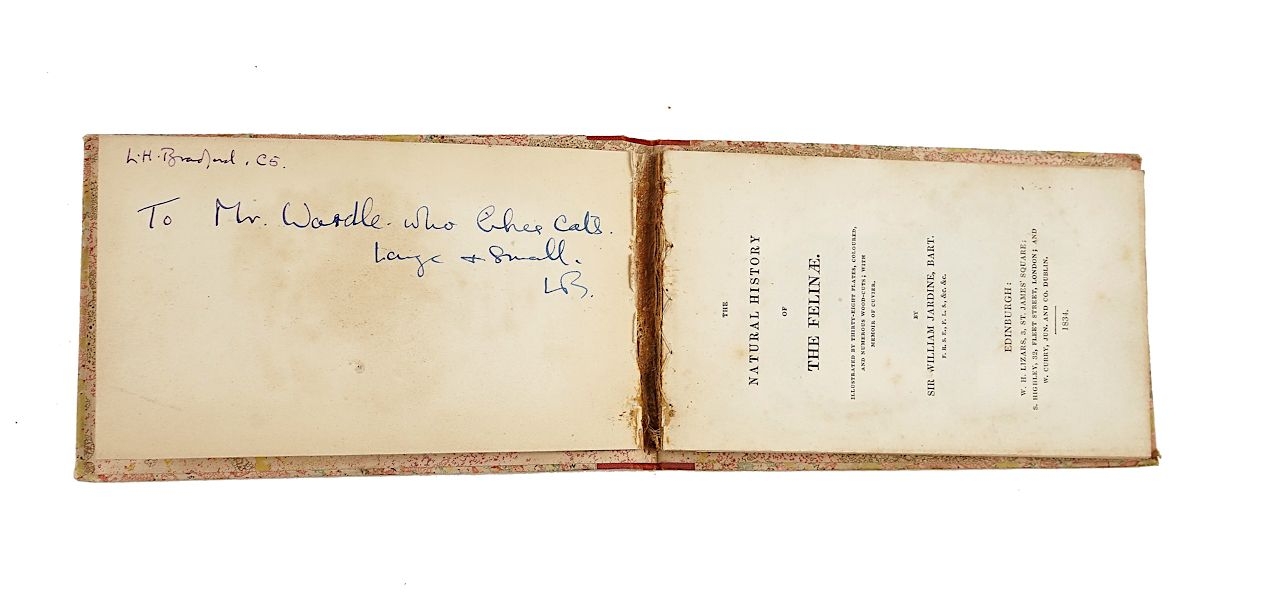 L.H. Bradford. CS.
To Mr. Wardle who likes cats.
Large & Small.
LB.
THE
NATURAL HISTORY
OF
THE FELINÆ.
ILLUSTRATED BY THIRTY-EIGHT PLATES, COLOURED,
AND NUMEROUS WOOD-CUTS; WITH
MEMOIR OF CUVIER.
BY
SIR WILLIAM JARDINE, BART.
F. R. S. E., F. L. S., &c. &c.
EDINBURGH:
W. H. LIZARS, 3, ST. JAMES' SQUARE;
S. HIGHLEY, 32, FLEET STREET, LONDON; AND
W. CURRY, JUN. AND CO. DUBLIN.
1834.